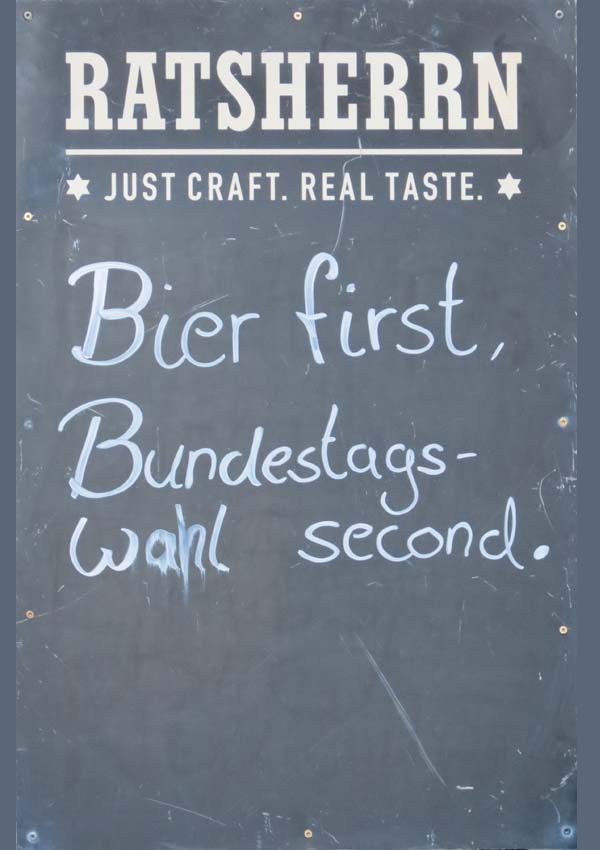 RATSHERRN
JUST CRAFT. REAL TASTE.
Bier first,
Bundestags-
wahl second.